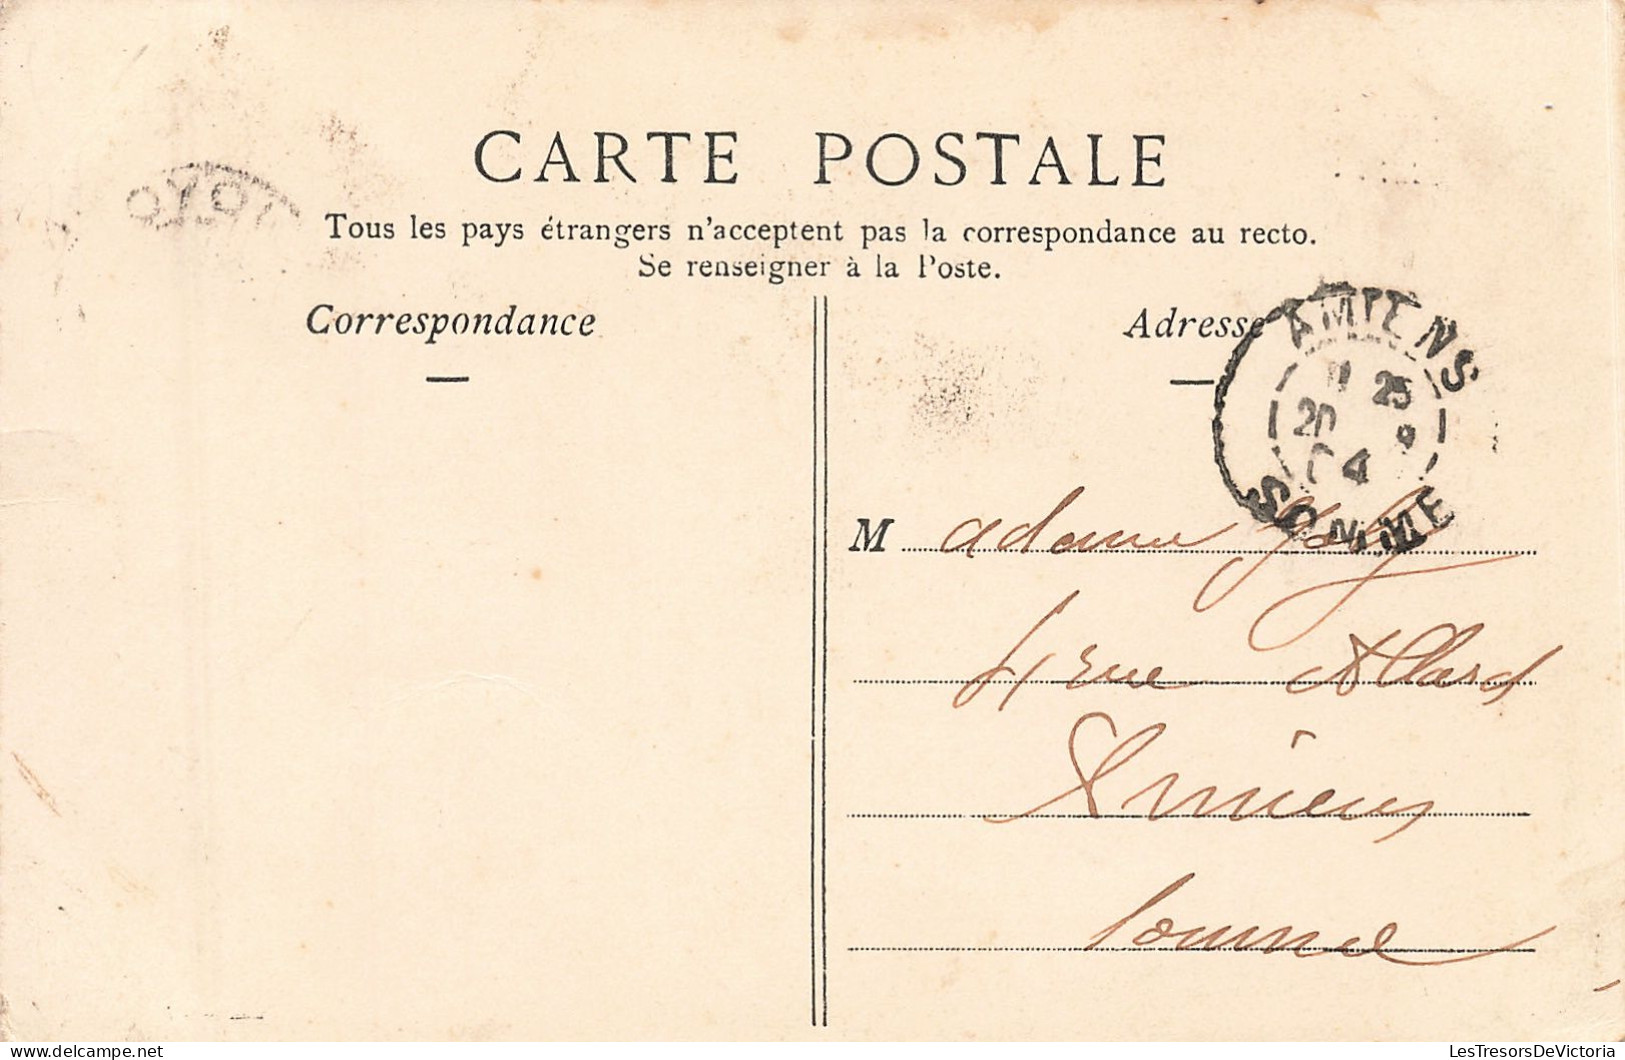 CARTE POSTALE
Tous les pays étrangers n'acceptent pas la correspondance au recto.
Se renseigner à la Poste.
Correspondance
Adresse
AMIENS
25
20 9
04
SOMME
M adame Joly
4 rue Allard
Amiens
Somme
delcampe.net
LesTresorsDeVictoria